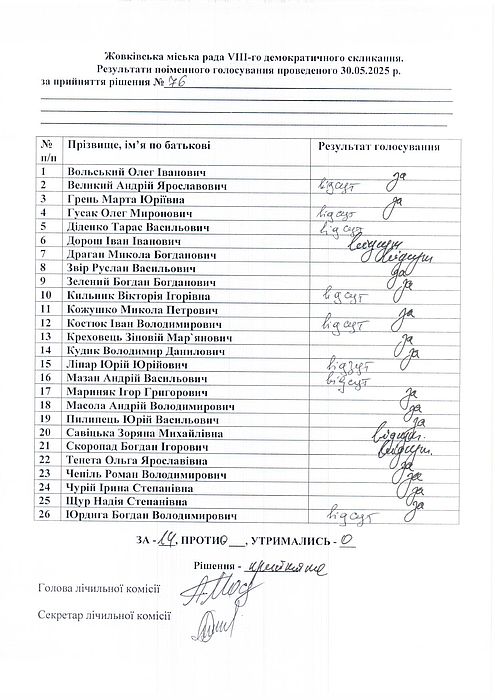 Жовківська міська рада VIII-го демократичного скликання.
Результати поіменного голосування проведеного 30.05.2025 р.
за прийняття рішення № 76
№ п/п Прізвище, ім’я по батькові Результат голосування
1 Вольський Олег Іванович за
2 Великий Андрій Ярославович відсут
3 Грень Марта Юріївна за
4 Гусак Олег Миронович відсут
5 Діденко Тарас Васильович відсут
6 Дорош Іван Іванович відсут
7 Драган Микола Богданович відсут.
8 Звір Руслан Васильович за
9 Зелений Богдан Богданович за
10 Кильник Вікторія Ігорівна відсут
11 Кожушко Микола Петрович за
12 Костюк Іван Володимирович відсут
13 Креховець Зіновій Мар`янович за
14 Кудик Володимир Данилович за
15 Лінар Юрій Юрійович відсут
16 Мазан Андрій Васильович відсут
17 Мариняк Ігор Григорович за
18 Масола Андрій Володимирович за
19 Пилипець Юрій Васильович за
20 Савіцька Зоряна Михайлівна відсут.
21 Скоропад Богдан Ігорович відсут.
22 Тенета Ольга Ярославівна за
23 Чепіль Роман Володимирович за
24 Чурій Ірина Степанівна за
25 Щур Надія Степанівна за
26 Юрдига Богдан Володимирович відсут
ЗА - 14, ПРОТИ 0, УТРИМАЛИСЬ - 0
Рішення - прийнято
Голова лічильної комісії
Секретар лічильної комісії